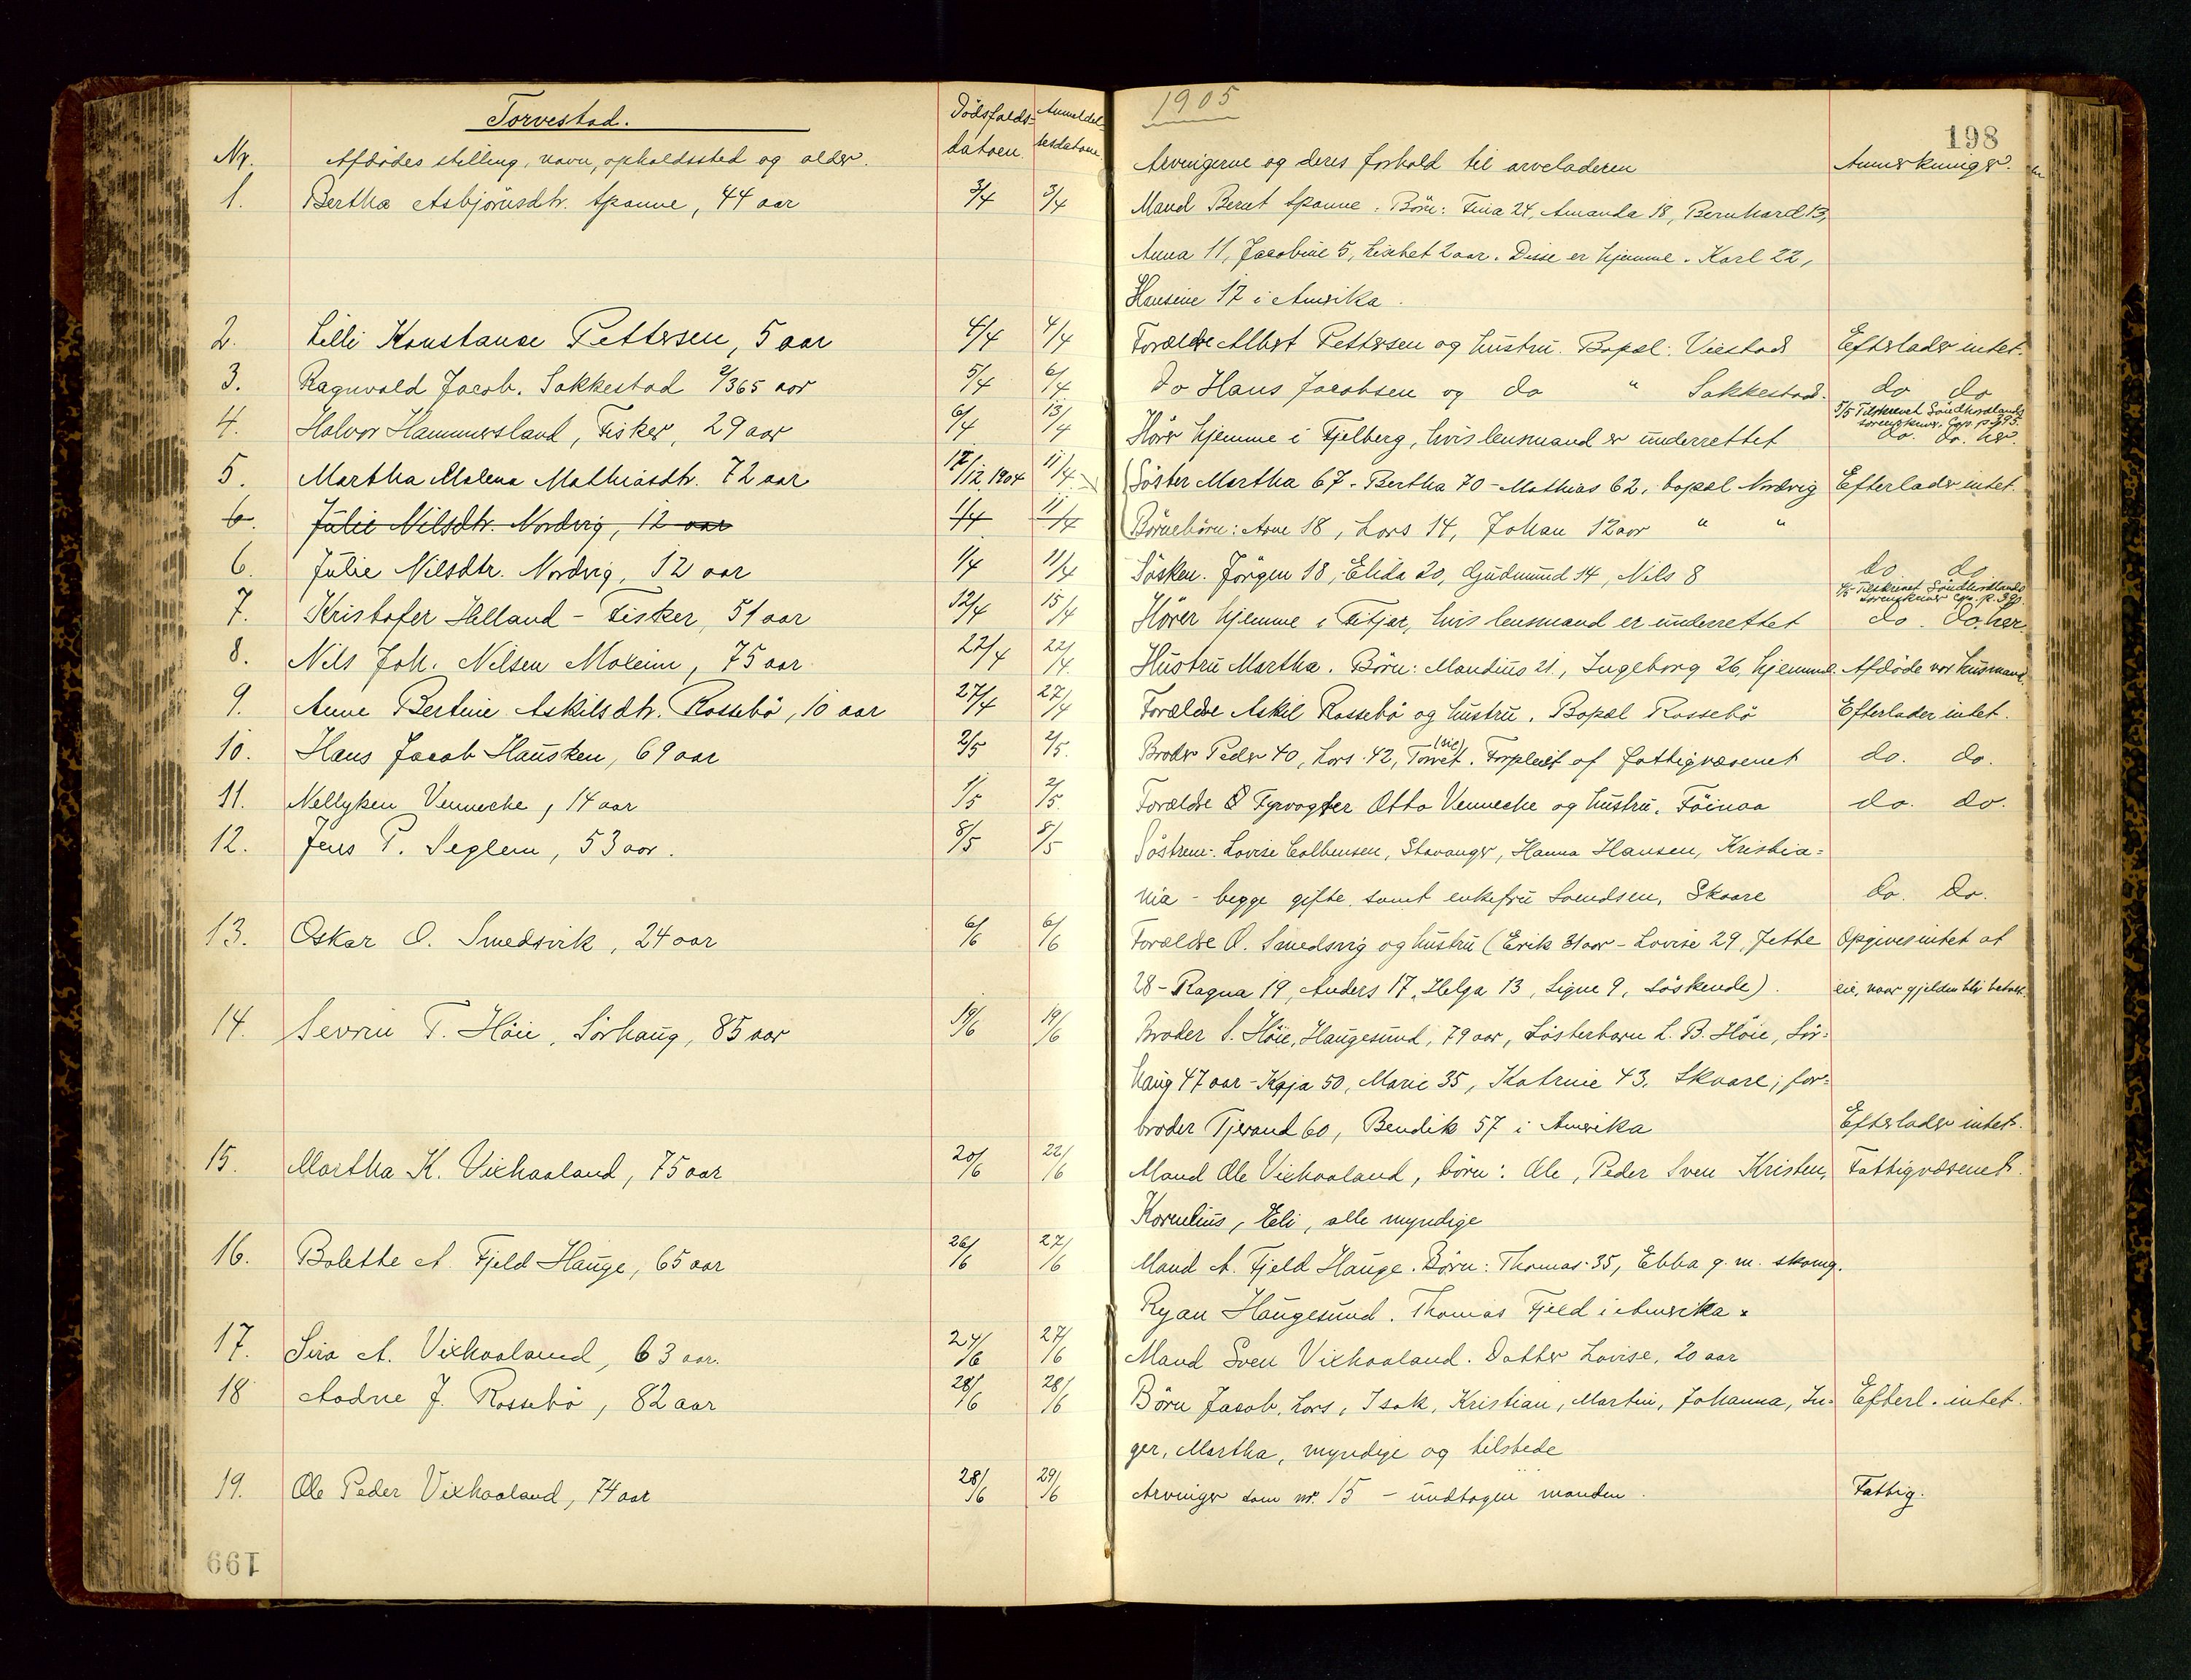 Torvestad.
Nr. Afdødes stilling, navn, opholdssted og alder. Dödsfalds-datoen. Anmeldelsesdatoen.
1905
198
Arvingerne og deres forhold til arveladeren Anmerkninger.
1. Bertha Asbjörnsdtr. Spanne, 44 aar 3/4 3/4 Mand Bernt Spanne. Börn: Tina 24, Amanda 18, Bernhard 13,
Anna 11, Jacobine 5, Lisebet 2 aar. Disse er hjemme. Karl 22,
Hansine 17 i Amerika.
2. Lilli Konstanse Pettersen, 5 aar 4/4 4/4 Forældre Albert Pettersen og hustru. Bopæl: Viestad Efterlader intet.
3. Ragnvald Jacob. Sakkestad 2/365 aar 5/4 6/4 Do Hans Jacobsen og do " Sakkestad. do do
4. Halvor Hammersland, Fisker, 29 aar 6/4 13/4 Hører hjemme i Fjelberg, hvis lensmand er underrettet 5/5 Tilskrevet Söndhordlands sorenskriver. Cop. p. 395. do. do. her.
5. Martha Malena Mathiasdtr. 72 aar 17/12 1904 11/4 (Söster Martha 67. Bertha 70 - Mathias 62, bopæl Nordvig Efterlader intet.
6. Julie Nilsdtr. Nordvig, 12 aar 1/4 11/4 (Börnebörn: Arne 18, Lars 14, Johan 12 aar " "
6. Julie Nilsdtr. Nordvig, 12 aar 1/4 11/4 Sösken. Jörgen 18, Elida 20, Gudmund 14, Nils 8 do do
7. Kristofer Helland - Fisker, 51 aar 12/4 15/4 Hører hjemme i Fitjar, hvis lensmand er underrettet 5/5 Tilskrevet Söndhordlands sorenskriver Cop. p. do. do. her.
8. Nils Joh. Nilsen Moxeim, 75 aar 22/4 22/4. Hustru Martha. Börn: Mandius 21, Ingeborg 26, hjemme. Afdöde var husmand.
9. Anne Bertine Askilsdtr. Rossebö, 10 aar 27/4 27/4 Forældre Askil Rossebö og hustru. Bopæl Rossebö Efterlader intet.
10. Hans Jacob Hausken, 69 aar 2/5 2/5. Broder Peder 40, Lars 42, Torvet (sic). Forpleiet af fattigvæsenet do. do.
11. Nellyken Venneche, 14 aar 1/5 2/5. Forældre Fyrvogter Otto Venneche og hustru. Föinaa do. do.
12. Jens P. Seglem, 53 aar. 8/5 8/5 Söstrene: Lovise Colbensen, Stavanger, Hanna Hansen, Kristia=
nia - begge gifte. samt enkefru Svendsen, Skaare do. do.
13. Oskar O. Smedsvik, 24 aar 6/6 6/6 Forældre O. Smedsvig og hustru (Erik 31 aar - Lovise 29, Jette Opgives intet at
28 - Ragna 19, Anders 17, Helga 13, Signe 9, söskende). eie, naar gjelden blir betalt.
14. Severin T. Höie, Sörhaug, 85 aar 19/6 19/6 Broder S. Höie, Haugesund, 79 aar, Sösterbarn L. B. Höie, Sör=
haug 47 aar - Kaja 50, Marie 35, Katrine 43. Skaare; far=
broder Tjerand 60, Bendik 57 i Amerika Efterlader intet.
15. Martha K. Vikhaaland, 75 aar 20/6 22/6 Mand Ole Vikhaaland, börn: Ole, Peder Sven Kristen, Fattigvæsenet.
Kornelius, Eli, alle myndige
16. Bolette A. Fjeld Hauge, 65 aar 26/6 27/6 Mand A. Fjeld Hauge. Börn: Thomas 35, Ebba g. m. skomg.
Ryan Haugesund. Thomas Fjeld i Amerika.
17. Siva A. Vikhaaland, 63 aar. 24/6 27/6 Mand Sven Vikhaaland. Datter Lovise, 20 aar
18 Aadne J. Rossebö, 82 aar 28/6 28/6 Börn Jacob, Lars, Isak, Kristian, Martin, Johanna, In= Efterl. intet.
ger, Martha, myndige og tilstede
19. Ole Peder Vikhaaland, 74 aar 28/6 29/6 Arvinger som nr. 15 - undtagen manden. Fattig.
199